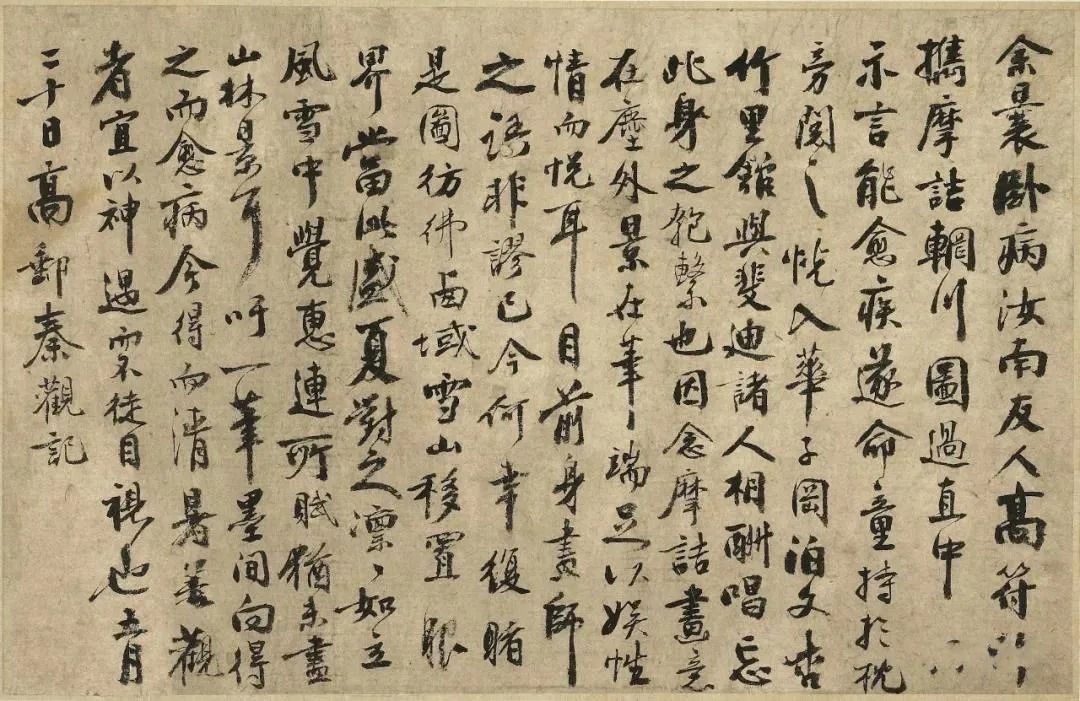 余曩臥病汝南友人高符
攜摩詰輞川圖過直中
示言能愈疾遂命童持於枕
旁閱之恍入華子岡泊文杏
竹里館與斐迪諸人相酬唱忘
此身之匏繫也因念摩詰畫意
在塵外景在筆端足以娛性
情而悅耳目前身畫師
之語非謬已今何幸復睹
是圖彷彿西域雪山移置眼
界當此盛夏對之凜〻如立
風雪中覺惠連所賦猶未盡
山林景耳吁一筆墨間向得
之而愈病今得而清暑善觀
者宜以神遇而不徒目視也五月
二十日高郵秦觀記